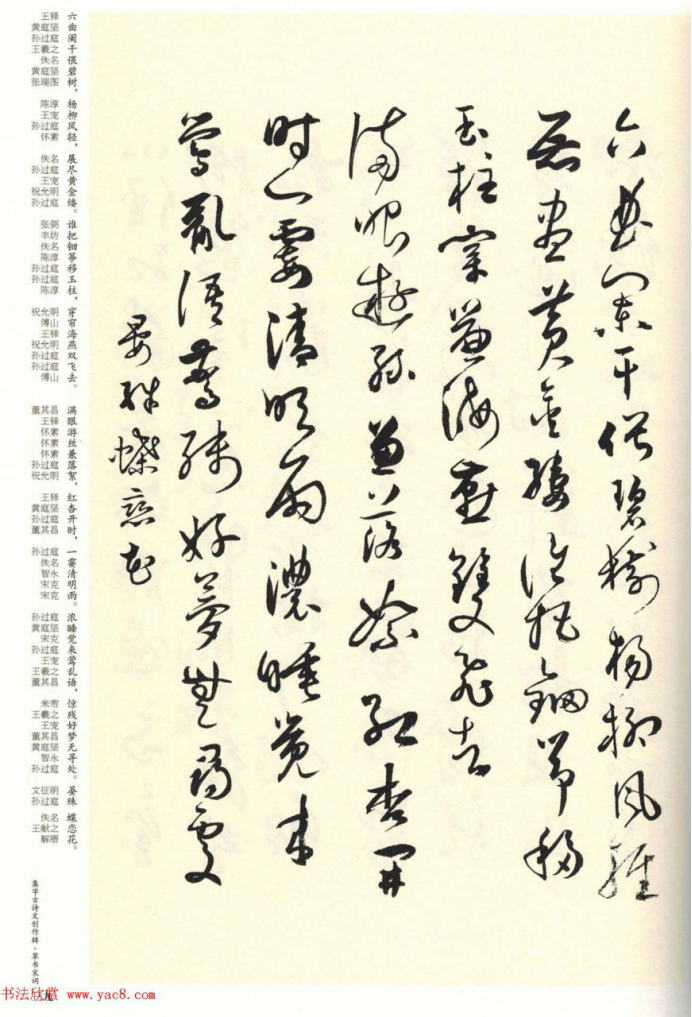 六曲闌干偎碧樹楊柳風輕
展盡黃金縷誰把鈿箏移
玉柱穿簾海燕雙飛去
滿眼遊絲兼落絮紅杏開
時一霎清明雨濃睡覺來
鶯亂語驚殘好夢無尋處
晏殊蝶戀花
六曲阑干偎碧树，杨柳风轻，展尽黄金缕。谁把钿筝移玉柱，穿帘海燕双飞去。满眼游丝兼落絮，红杏开时，一霎清明雨。浓睡觉来莺乱语，惊残好梦无寻处。晏殊 蝶恋花。
王铎
黄庭坚
孙过庭
王羲之
佚名
黄庭坚
张瑞图
陈淳
王宠
孙过庭
怀素
佚名
孙过庭
王宠
祝允明
孙过庭
张弼
丰坊
佚名
陈淳
孙过庭
孙过庭
陈淳
祝允明
傅山
王铎
祝允明
孙过庭
孙过庭
傅山
董其昌
王铎
怀素
怀素
怀素
孙过庭
祝允明
王铎
黄庭坚
孙过庭
董其昌
孙过庭
佚名
智永
宋克
宋克
孙过庭
黄庭坚
宋克
孙过庭
王宠
王羲之
董其昌
米芾
王羲之
王宠
董其昌
黄庭坚
智永
孙过庭
文征明
孙过庭
佚名
王献之
解缙
集字古诗文创作辑·草书宋词
书法欣赏 www.yac8.com